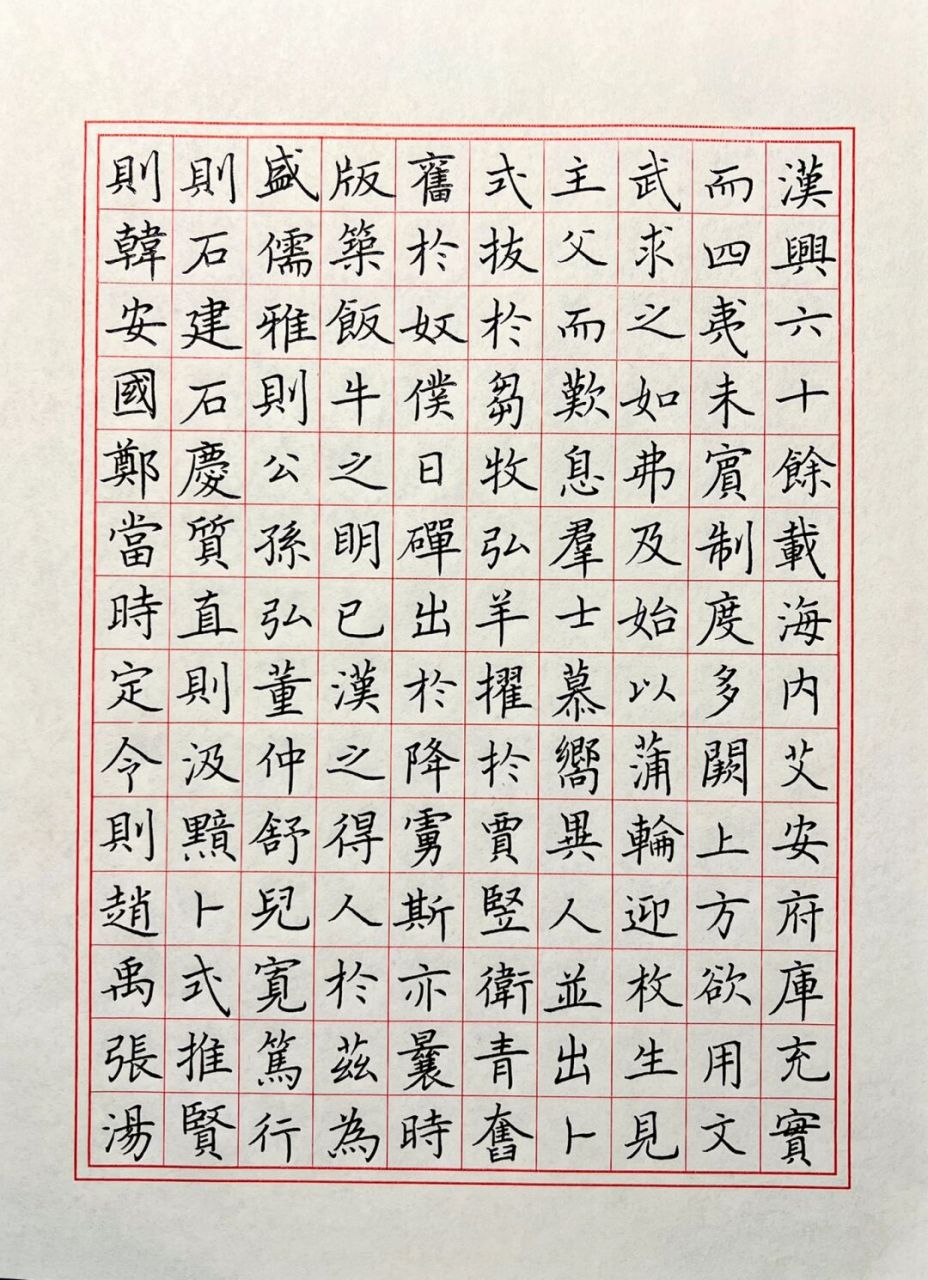 漢興六十餘載海内艾安府庫充實
而四夷未賓制度多闕上方欲用文
武求之如弗及始以蒲輪迎枚生見
主父而歎息羣士慕嚮異人並出卜
式拔於芻牧弘羊擢於賈竪衛青奮
舊於奴僕日磾出於降虜斯亦曩時
版築飯牛之眀已漢之得人於茲為
盛儒雅則公孫弘董仲舒兒寬篤行
則石建石慶質直則汲黯卜式推賢
則韓安國鄭當時定令則趙禹張湯